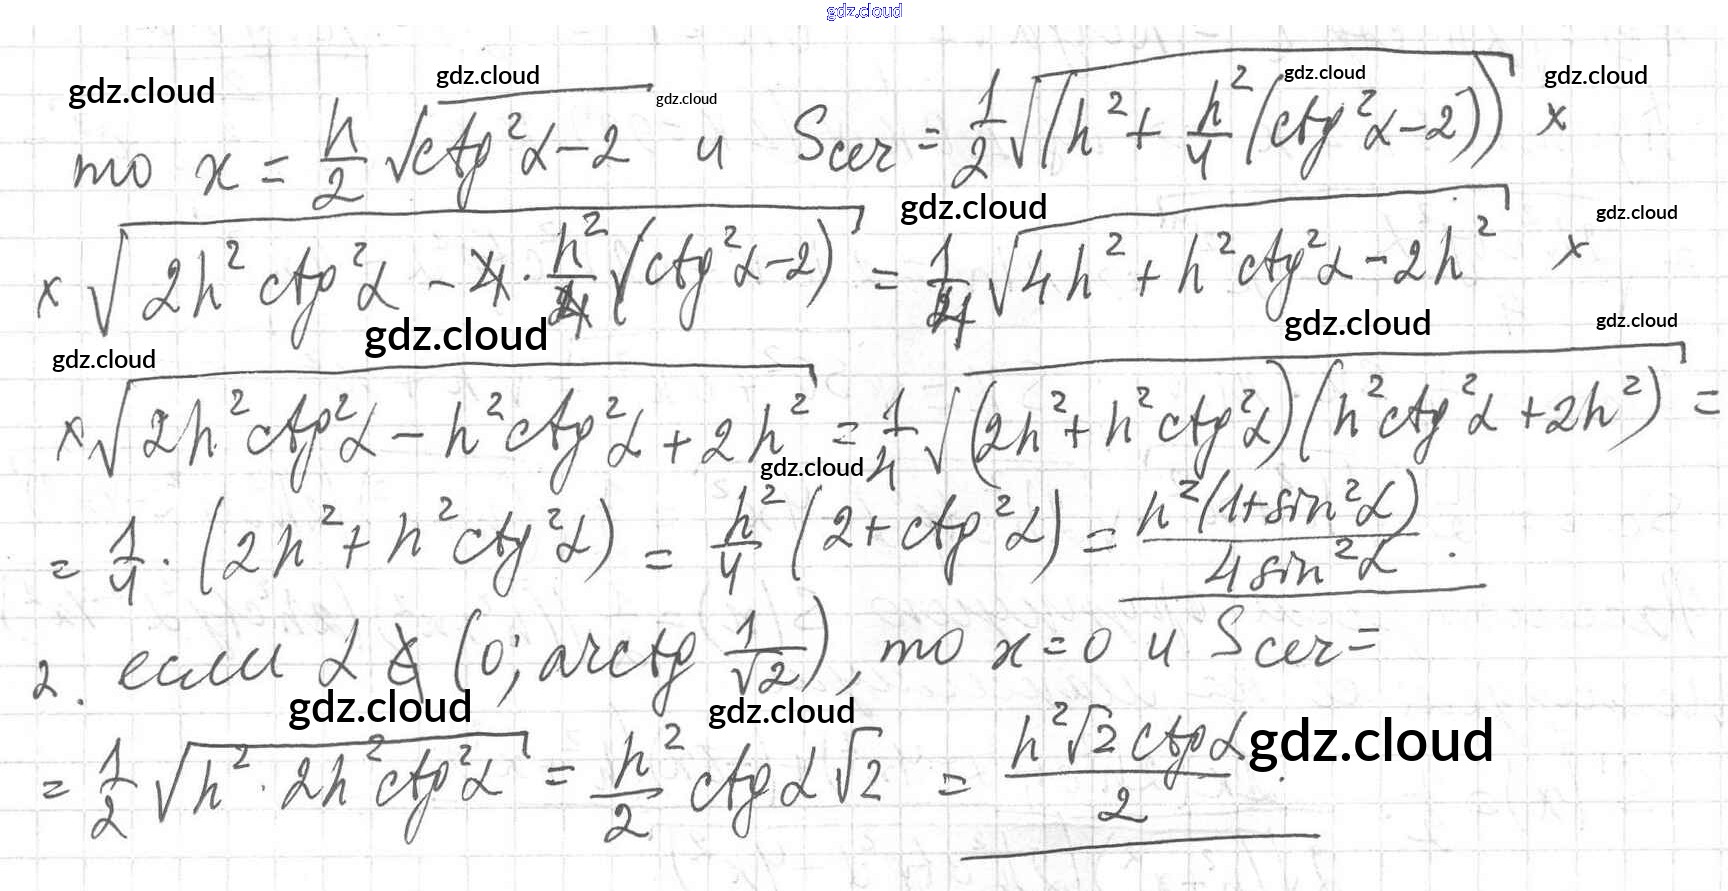 gdz.cloud
gdz.cloud gdz.cloud gdz.cloud gdz.cloud gdz.cloud
то x = h/2 √(ctg²α − 2) и Sсеч = 1/2 √((h² + h²/4 (ctg²α − 2))) ×
gdz.cloud gdz.cloud
× √(2h² ctg²α − 4 · h²/4 (ctg²α − 2)) = 1/4 √(4h² + h² ctg²α − 2h²) ×
gdz.cloud gdz.cloud gdz.cloud gdz.cloud
× √(2h² ctg²α − h² ctg²α + 2h²) = 1/4 √((2h² + h² ctg²α)(h² ctg²α + 2h²)) =
gdz.cloud
= 1/4 · (2h² + h² ctg²α) = h²/4 (2 + ctg²α) = h²(1 + sin²α)/4 sin²α .
2. если α ∈ (0; arctg 1/√2), то x = 0 и Sсеч =
gdz.cloud gdz.cloud gdz.cloud
= 1/2 √(h² · 2h² ctg²α) = h²/2 ctg α √2 = h²√2 ctg α/2 .